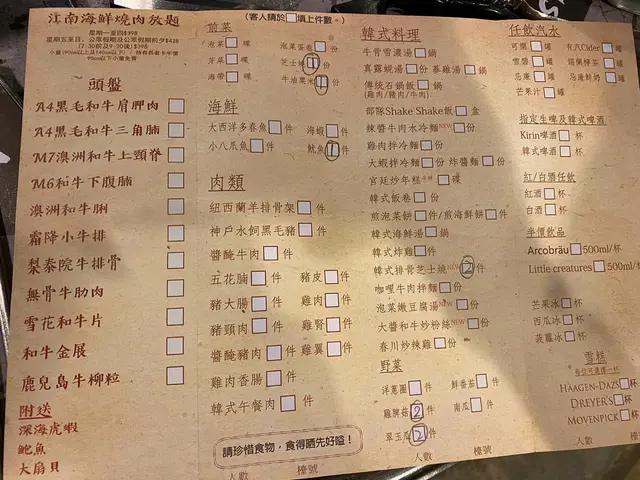 江南海鮮燒肉放題
星期一至四$398
星期五至日, 公眾假期及公眾假期前夕$428
(7:30前及9:30後)$398
小童(90cm以上及140cm以下)
90cm以下小童免費
頭盤
A4黑毛和牛肩胛肉
A4黑毛和牛三角腩
M7澳洲和牛上頸脊
M6和牛下腹腩
澳洲和牛脷
霜降小牛排
梨泰院牛排骨
無骨牛肋肉
雪花和牛片
和牛金展
鹿兒島牛柳粒
附送
深海虎蝦
鮑魚
大扇貝
(客人請於□填上件數。)
前菜
泡菜 碟 泡菜蛋卷 份
芽菜 碟 芝士 1 份
海帶 碟 牛油粟米 1 份
海鮮
大西洋多春魚 件 海蝦 件
小八爪魚 件 魷魚 1 件
肉類
紐西蘭羊排骨架 件
神戶水飼黑毛豬 件
醬醃牛肉 件
五花腩 件 豬皮 件
豬大腸 件 雞肉 件
豬頸肉 件 雞腎 件
醬醃豬肉 件 雞翼 件
雞肉香腸 件
韓式午餐肉 件
請珍惜食物, 食得晒先好嗌!
人數 檯號
韓式料理
牛骨雪濃湯 鍋
真露蜆湯 份 蔘雞湯 鍋
傳統石鍋飯 鍋
(雞肉/豬肉/牛肉)
部隊Shake Shake飯 盒
辣醬牛肉水冷麵NEW 份
雞肉拌冷麵 份
大蝦拌冷麵 份 炸醬麵 份
宮廷炒年糕 碟
韓式飯卷 份
煎泡菜餅 件/煎海鮮餅 件
韓式海鮮湯 鍋
韓式炸雞 件
韓式排骨芝士燒NEW 2 件
咖喱牛肉拌麵 份
泡菜嫩豆腐湯NEW 份
大醬和牛炒粉絲NEW 份
春川炒辣雞 份
野菜
洋蔥圈 件 鮮番茄 件
雞髀菇 2 件 南瓜 件
翠玉瓜 2 件
人數 檯號
任飲汽水
可樂 罐 有汽Cider 罐
雪碧 罐 罐
忌廉 罐 忌廉鮮奶 罐
芒果汁 罐
指定生啤及韓式啤酒
Kirin啤酒 杯
韓式啤酒 杯
紅/白酒任飲
紅酒 杯
白酒 杯
半價飲品
Arcobräu 500ml/杯
Little creatures 500ml/杯
芒果冰 杯
西瓜冰 杯
菠蘿冰 杯
雪糕
每位可選擇一杯
HÄAGEN-DAZS 杯
DREYER'S 杯
MOVENPICK 杯
人數 檯